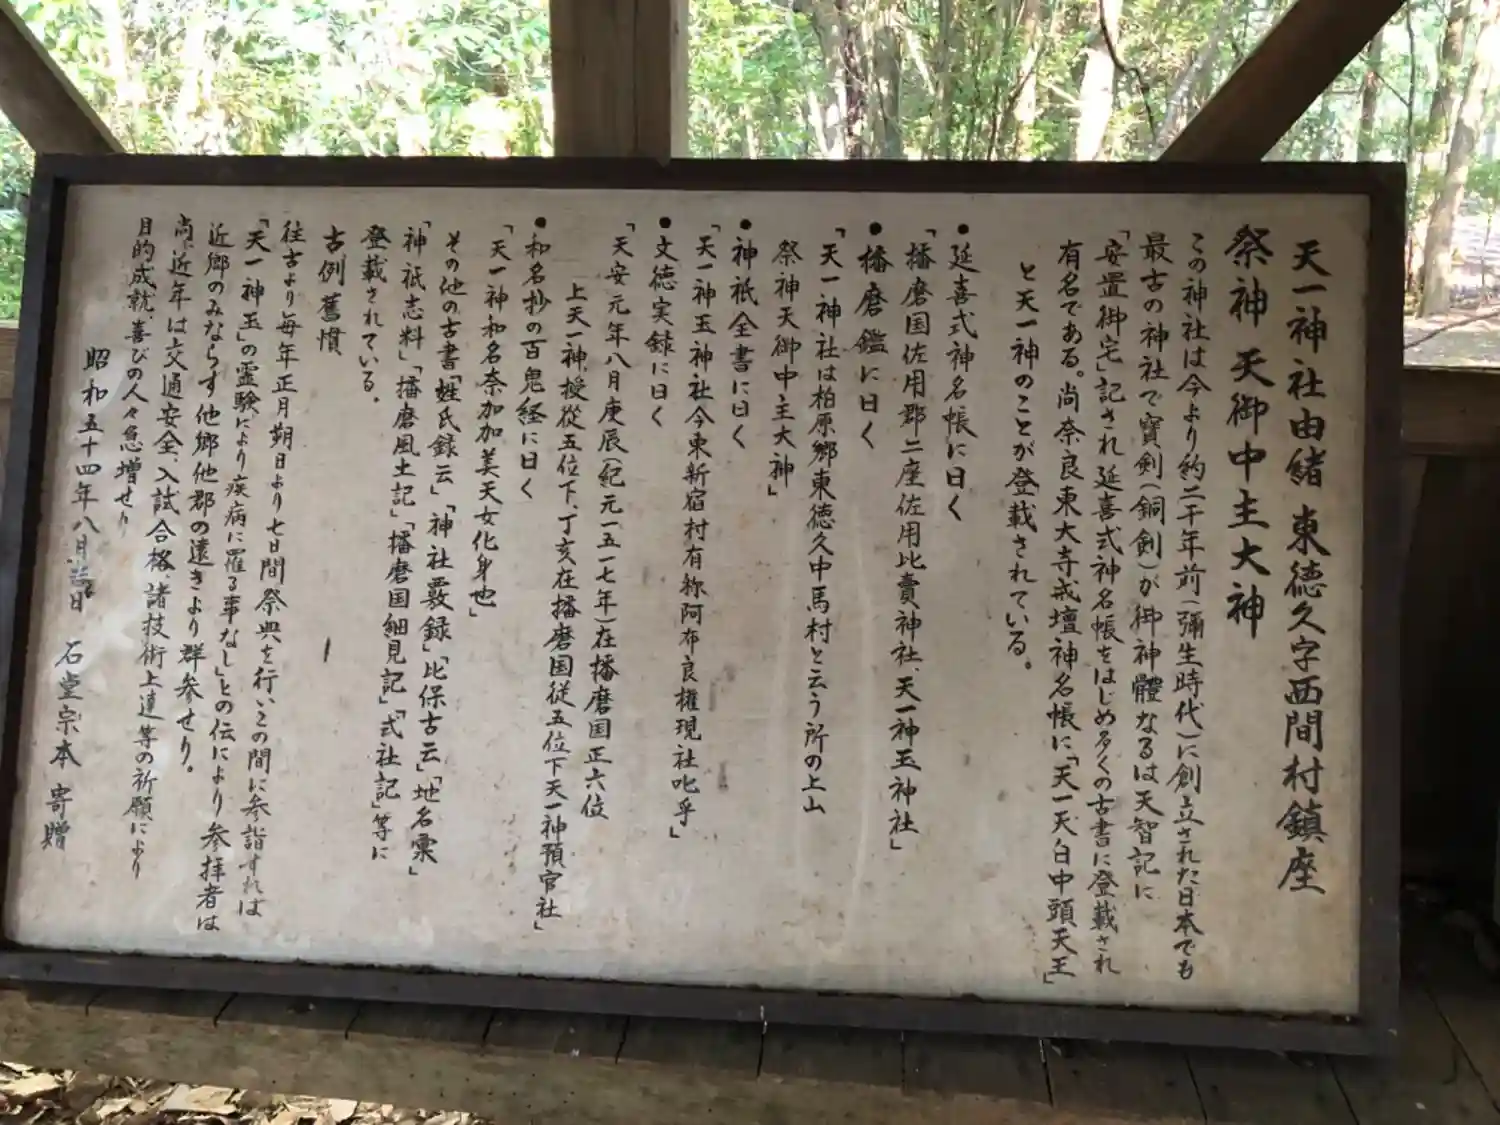 天一神社由緒 東徳久字西間村鎮座
祭神 天御中主大神
この神社は今より約二千年前(彌生時代)に創立された日本でも
最古の神社で寶剣(銅剣)が御神體なるは天智記に
「安置御宅」記され延喜式神名帳をはじめ多くの古書に登載され
有名である。尚奈良東大寺戒壇神名帳に「天一天白中頭天王」
と天一神のことが登載されている。
●延喜式神名帳に曰く
「播磨国佐用郡二座佐用比賣神社、天一神玉神社」
●播磨鑑に曰く
「天一神社は柏原郷東徳久中馬村と云う所の上山
祭神天御中主大神」
●神祇全書に曰く
「天一神玉神社今東新宿村有称阿布良権現社叱乎」
●文徳実録に曰く
「天安元年八月庚辰(紀元一五一七年)在播磨国正六位
上天一神授從五位下、丁亥在播磨国従五位下天一神預官社」
●和名抄の百鬼経に曰く
「天一神和名奈加加美天女化身也」
その他の古書「姓氏録云」「神社覈録」「比保古云」「地名稟」
「神祇志料」「播磨風土記」「播磨国細見記」「式社記」等に
登載されている.
古例舊慣
往古より毎年正月朔日より七日間祭典を行いこの間に参詣すれは
「天一神玉」の霊験により疾病に罹る事なし」との伝により参拝者は
近郷のみならす他郷他郡の遠きより群参せり。
尚、近年は交通安全、入試合格、諸技術上達等の祈願により
目的成就、喜びの人々急増せり
昭和五十四年八月 日 石堂宗本 寄贈